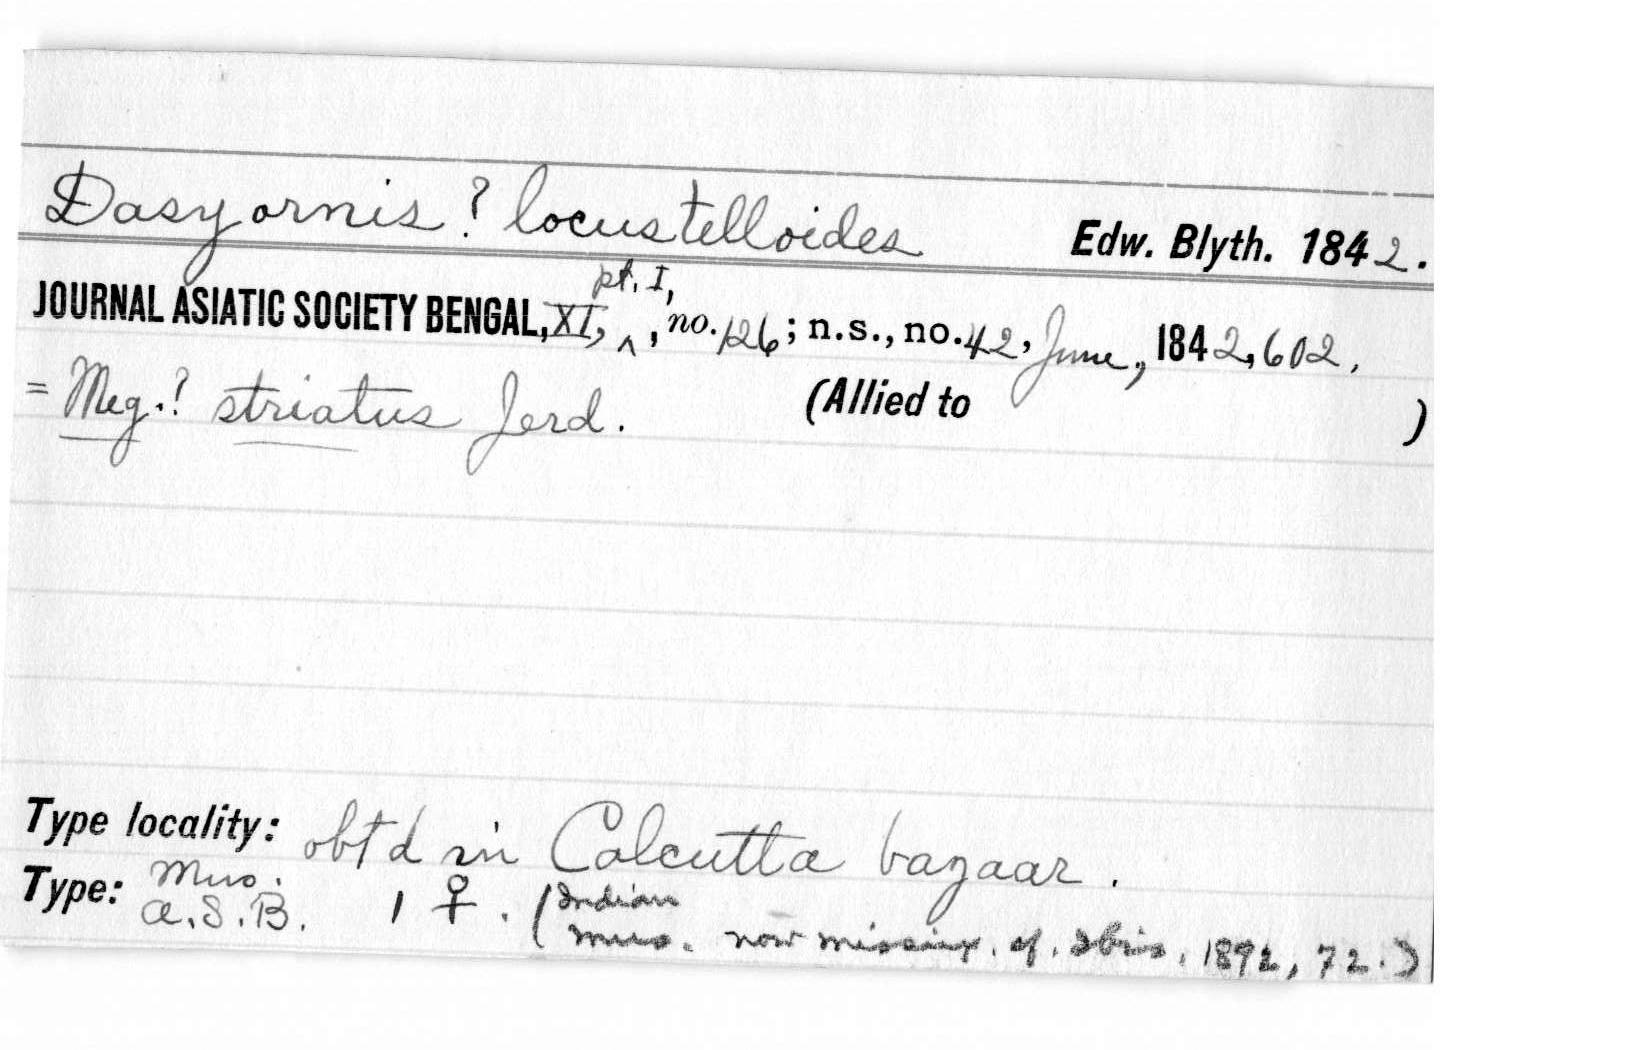 Dasyornis ? locustelloides Edw. Blyth. 1842.
pt. I,
JOURNAL ASIATIC SOCIETY BENGAL, XI, ^ , no. 126; n.s., no. 42, June, 1842, 602.
= Meg.? striatus Jerd. (Allied to )
Type locality: obtd in Calcutta bazaar.
Type: Mus. A.S.B. 1 ♀. (Indian
Mus. now missing. cf. Ibis, 1892, 72.)